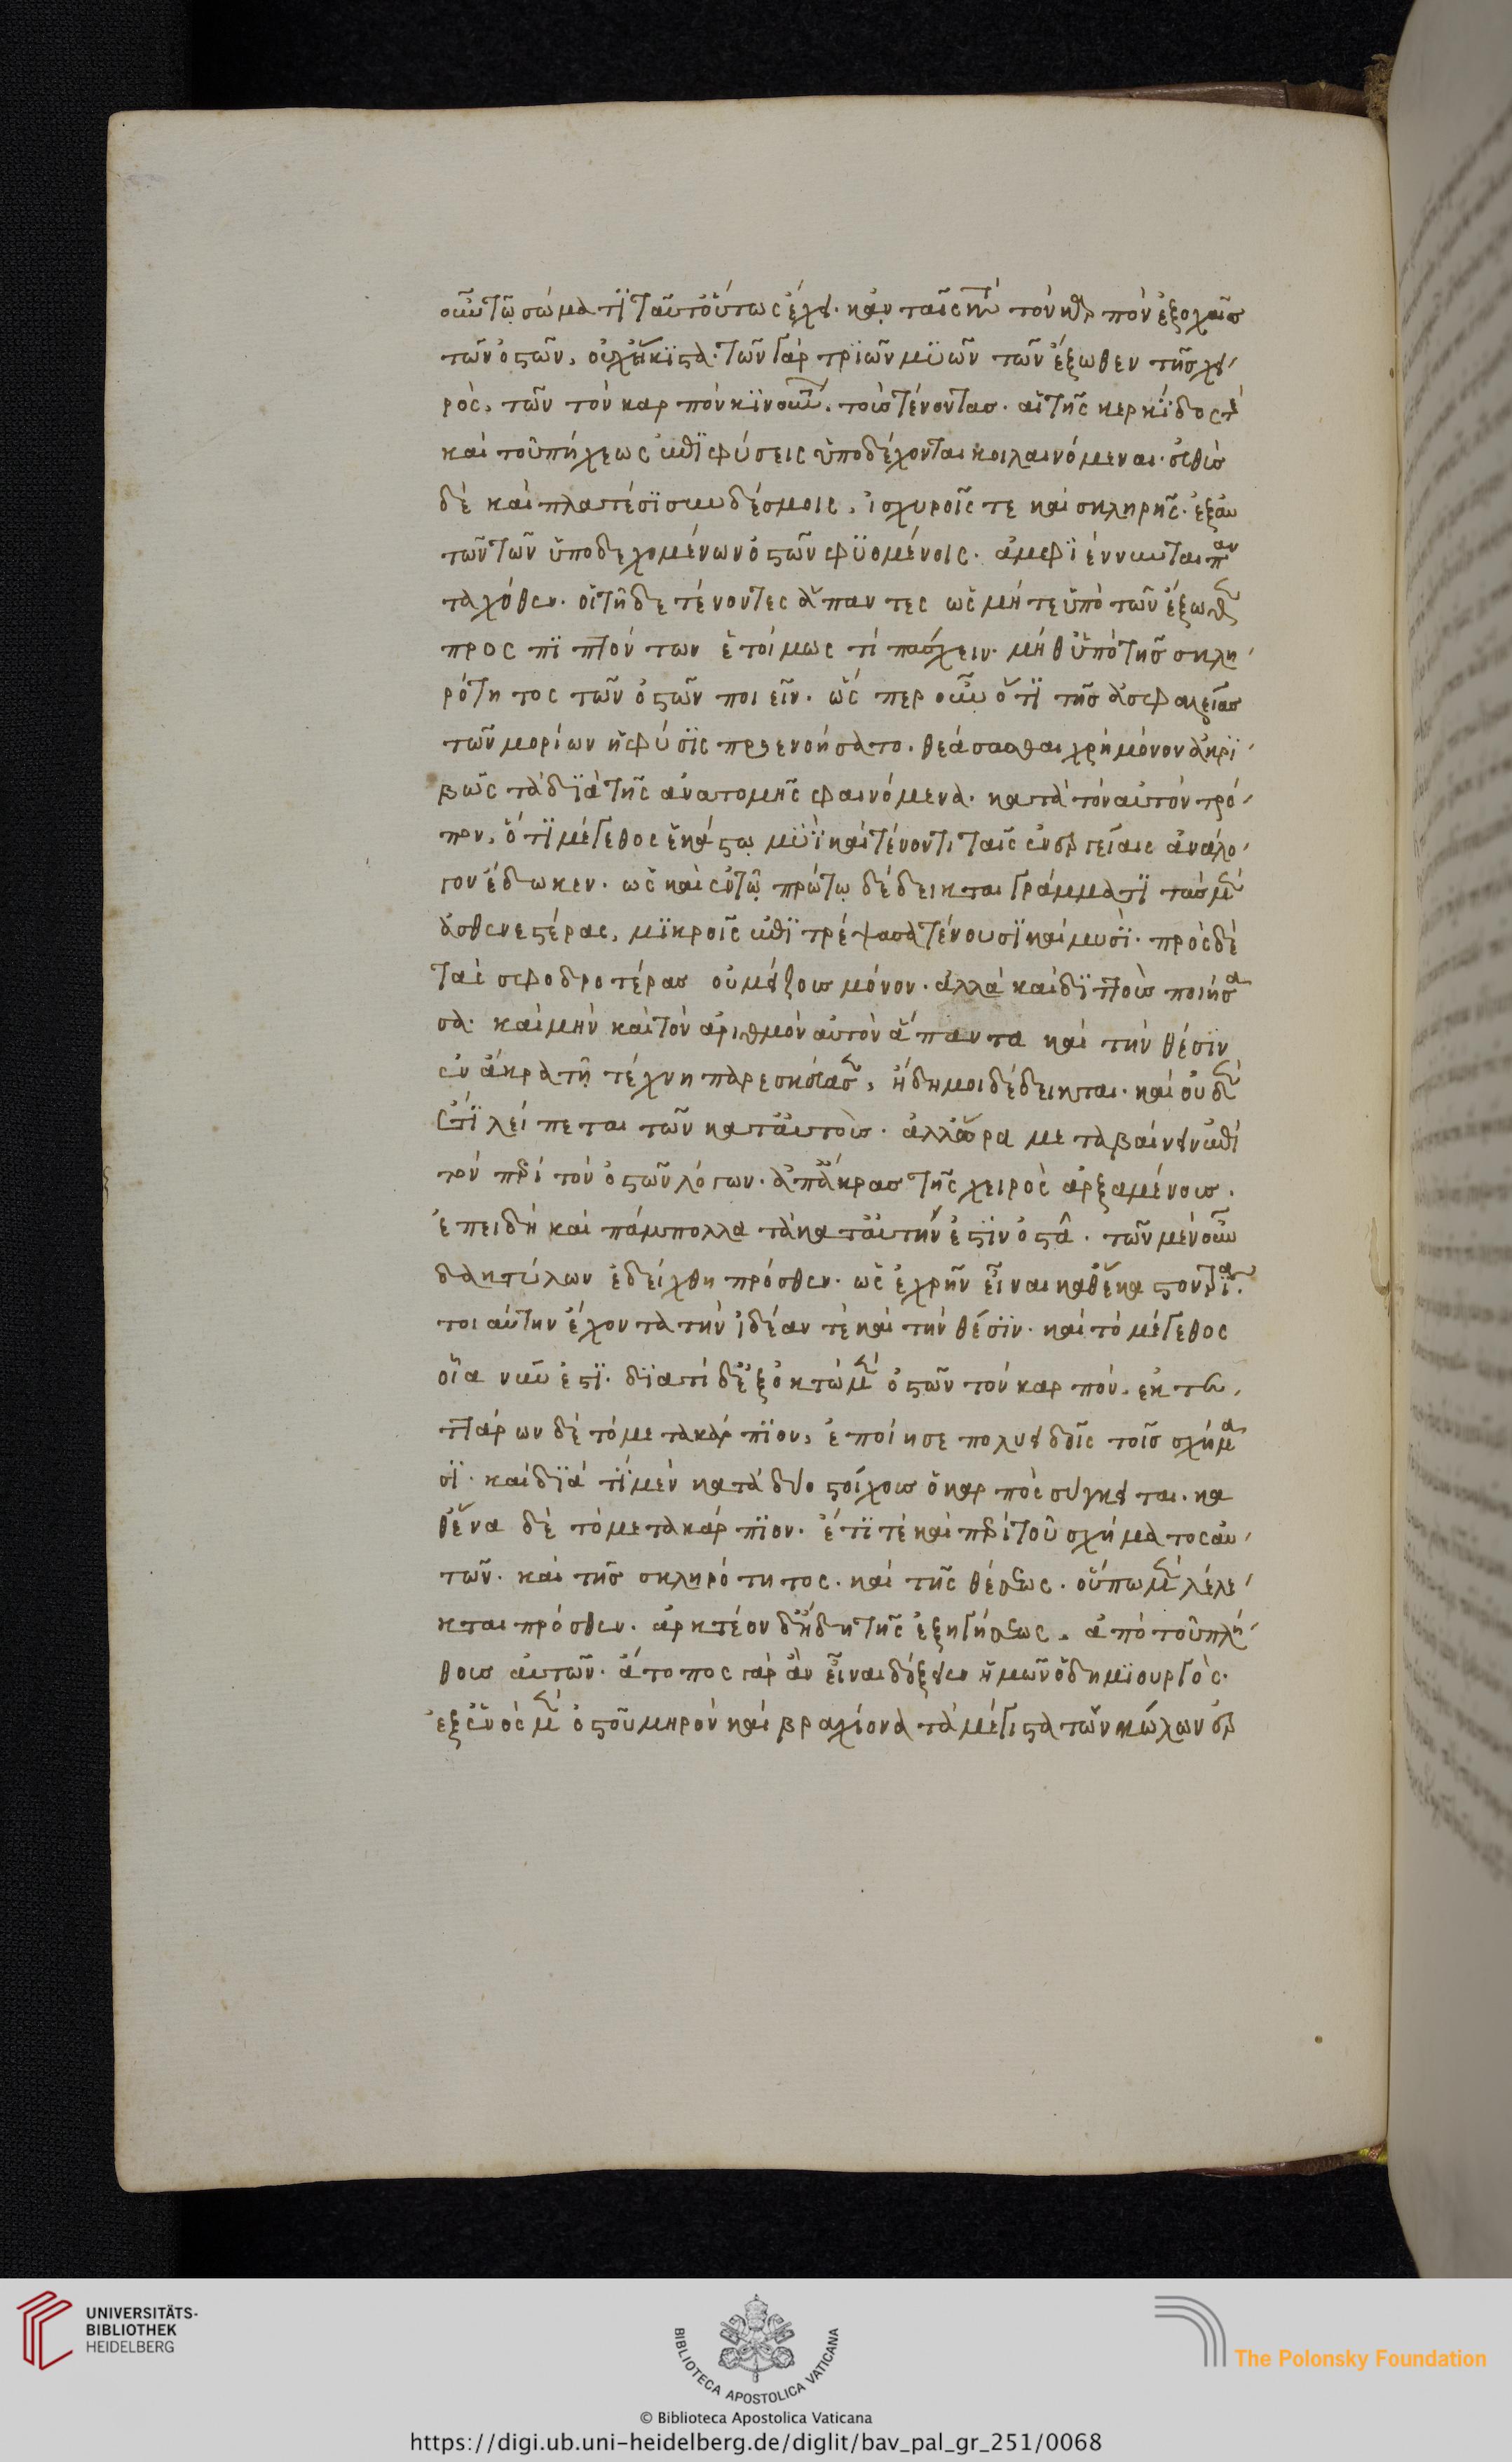 οὖν τῷ σώματι ταῦτ' οὕτως ἔχει. κἀν ταῖς κατὰ τὸν καρπὸν ἐξοχαῖς
τῶν ὀστῶν, οὐχ ἥκιστα. τῶν γὰρ τριῶν μυῶν τῶν ἔξωθεν τῆς χει
ρὸς, τῶν τὸν καρπὸν κινούντων, τοὺς τένοντας. αἱ τῆς κερκίδος τε
καὶ τοῦ πήχεως ἐπιφύσεις ὑποδέχονται κοιλαινόμεναι.
δὲ καὶ πλατέσι συνδέσμοις, ἰσχυροῖς τε καὶ σκληροῖς. ἐξ αὐ
τῶν τῶν ὑποδεχομένων ὀστῶν φυομένοις. ἀμφιέννυνται παν
ταχόθεν. οἱ τῇδε τένοντες ἅπαντες ὡς μήτε ὑπὸ τῶν ἔξωθεν
προσπιπτόντων ἑτοίμως τι πάσχειν. μήθ' ὑπὸ τῆς σκλη
ρότητος τῶν ὀστῶν πονεῖν. ὥσπερ οὖν ὅτι τῆς ἀσφαλείας
τῶν μορίων ἡ φύσις προενοήσατο. θεάσασθαι χρὴ μόνον ἀκρι
βῶς τὰ διὰ τῆς ἀνατομῆς φαινόμενα. κατὰ τὸν αὐτὸν τρό
πον, ὅτι μέγεθος ἑκάστῳ μυῒ καὶ τένοντι ταῖς ἐνεργείαις ἀνάλο
γον ἔδωκεν. ὡς καὶ ἐν τῷ πρώτῳ δέδεικται γράμματι τὰς μὲν
ἀσθενεστέρας, μικροῖς ἐπιτρέψασα τένουσι καὶ μυσὶ. πρὸς δὲ
τὰς σφοδροτέρας οὐ μείζους μόνον. ἀλλὰ καὶ διττοὺς ποιήσα
σα. καὶ μὴν καὶ τὸν ἀριθμὸν αὐτὸν ἅπαντα καὶ τὴν θέσιν
ἐν ἄκρᾳ τῇ τέχνῃ παρεσκεύασεν, ἤδη μοι δέδεικται. καὶ οὐδὲν
ἔτι λείπεται τῶν κατ' αὐτοὺς. ἀλλ' ὥρα μεταβαίνειν ἐπὶ
τὸν περὶ τὸν ὀστῶν λόγων. ἀπ' ἄκρας τῆς χειρὸς ἀρξαμένους.
ἐπειδὴ καὶ πάμπολλα τὰ κατ' αὐτήν ἐστιν ὀστᾶ. τῶν μὲν οὖν
δακτύλων ἐδείχθη πρόσθεν. ὡς ἐχρῆν εἶναι καθ' ἕκαστον τρία.
τοιαύτην ἔχοντα τὴν ἰδέαν τὲ καὶ τὴν θέσιν. καὶ τὸ μέγεθος
οἷα νῦν ἐστι. διατί δ' ἐξ ὀκτὼ μὲν ὀστῶν τὸν καρπὸν, ἐκ τετ
τάρων δὲ τὸ μετακάρπιον, ἐποίησε πολυειδέσι τοῖς σχήμα
σι. καὶ διὰ τί μὲν κατὰ δύο στοίχους ὁ καρπὸς σύγκειται. κα
θ' ἕνα δὲ τὸ μετακάρπιον. ἔτι τὲ καὶ περὶ τοῦ σχήματος αὐ
τῶν. καὶ τῆς σκληρότητος. καὶ τῆς θέσεως. οὔπω μὲν λέλε
κται πρόσθεν. ἀρκτέον δ' ἤδη τῆς ἐξηγήσεως, ἀπὸ τοῦ πλή
θους αὐτῶν. ἄτοπος γὰρ ἂν εἶναι δόξειεν ἡμῶν ὁ δημιουργὸς.
ἐξ ἑνὸς μὲν ὀστοῦ μηρὸν καὶ βραχίονα τὰ μέγιστα τῶν κώλων ἐρ
UNIVERSITÄTS-
BIBLIOTHEK
HEIDELBERG
BIBLIOTECA APOSTOLICA VATICANA
The Polonsky Foundation
© Biblioteca Apostolica Vaticana
https://digi.ub.uni-heidelberg.de/diglit/bav_pal_gr_251/0068